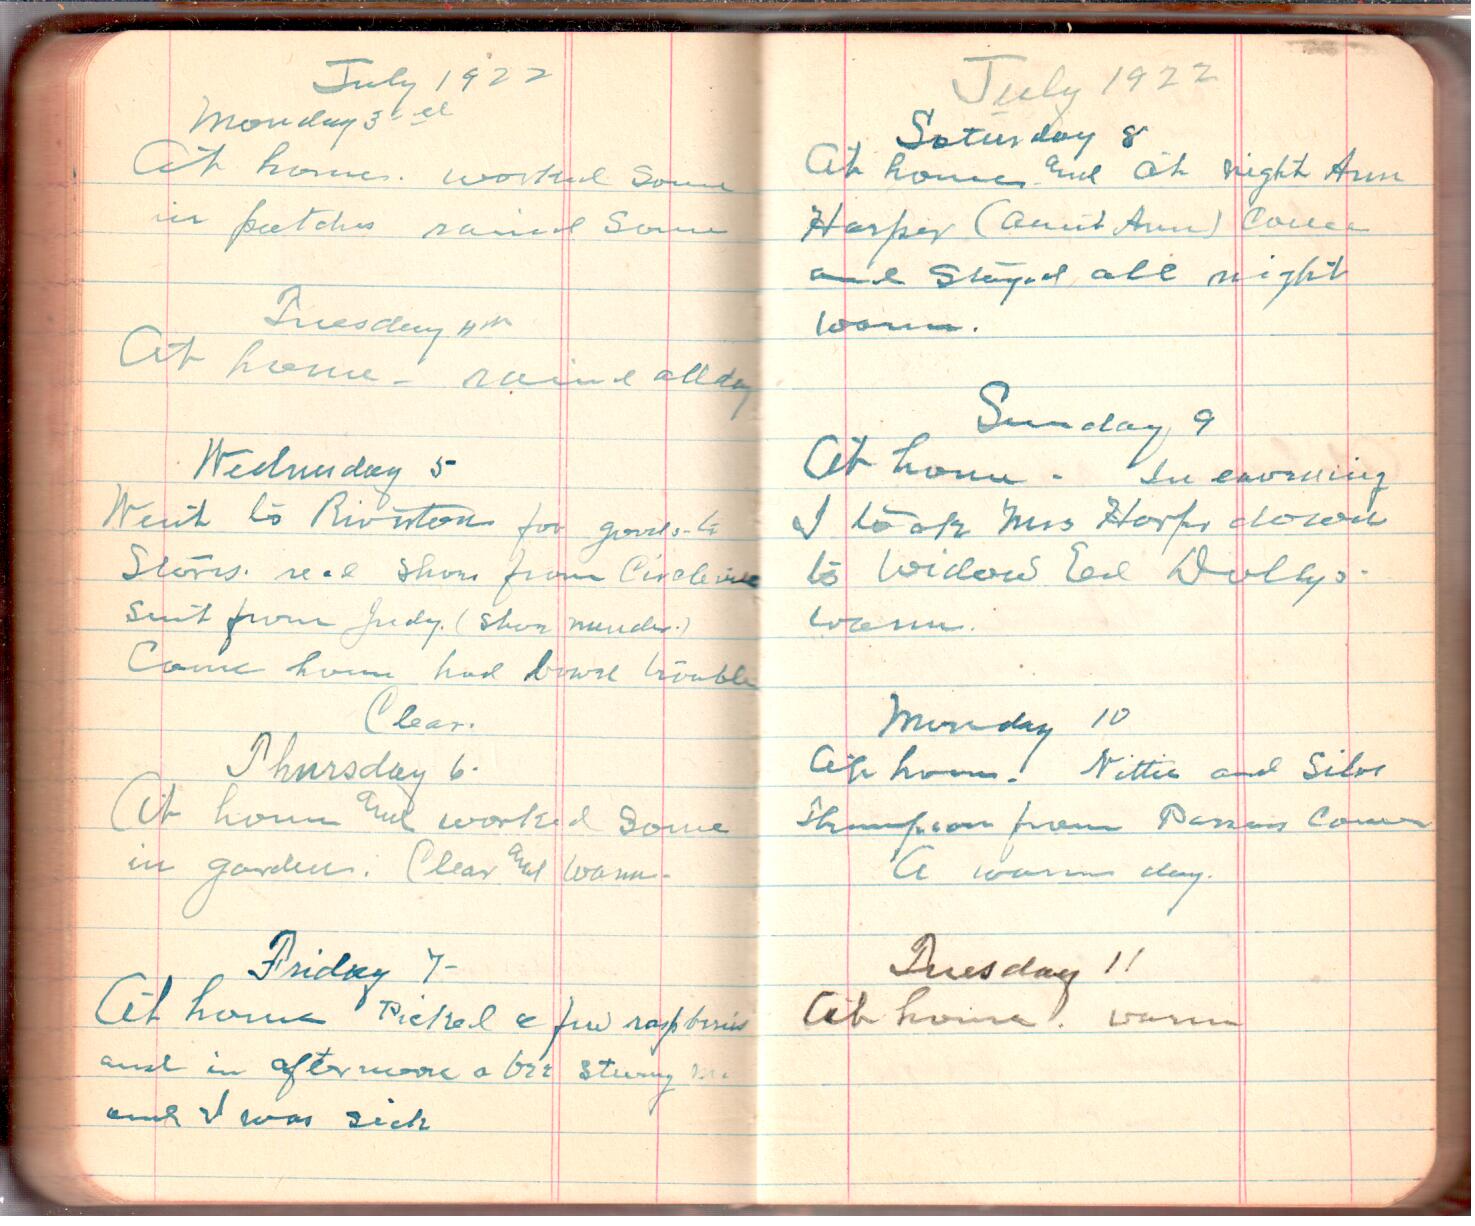 July 1922
Monday 3rd
At home. worked some
in patches rained Some
Tuesday 4th
At home - rained all day
Wednesday 5
Went to Riverton for goods to
Stores. rec'd Shoes from Circleville
sent from Judy. (Shoe mender.)
Came home had bowel trouble
Clear.
Thursday 6.
At home and worked Some
in garden. Clear and warm-
Friday 7-
At home Picked a few raspberries
and in afternoon a bee stung me
and I was sick
July 1922
Saturday 8
At home and at night Ann
Harper (Aunt Ann) Come
and Stayed all night
warm.
Sunday 9
At home - In evening
I took Mrs Harper down
to Widow Ed Dollys.
warm.
Monday 10
At home. Nettie and
Thompson from Parsons Come
A warm day.
Tuesday 11
At home. warm